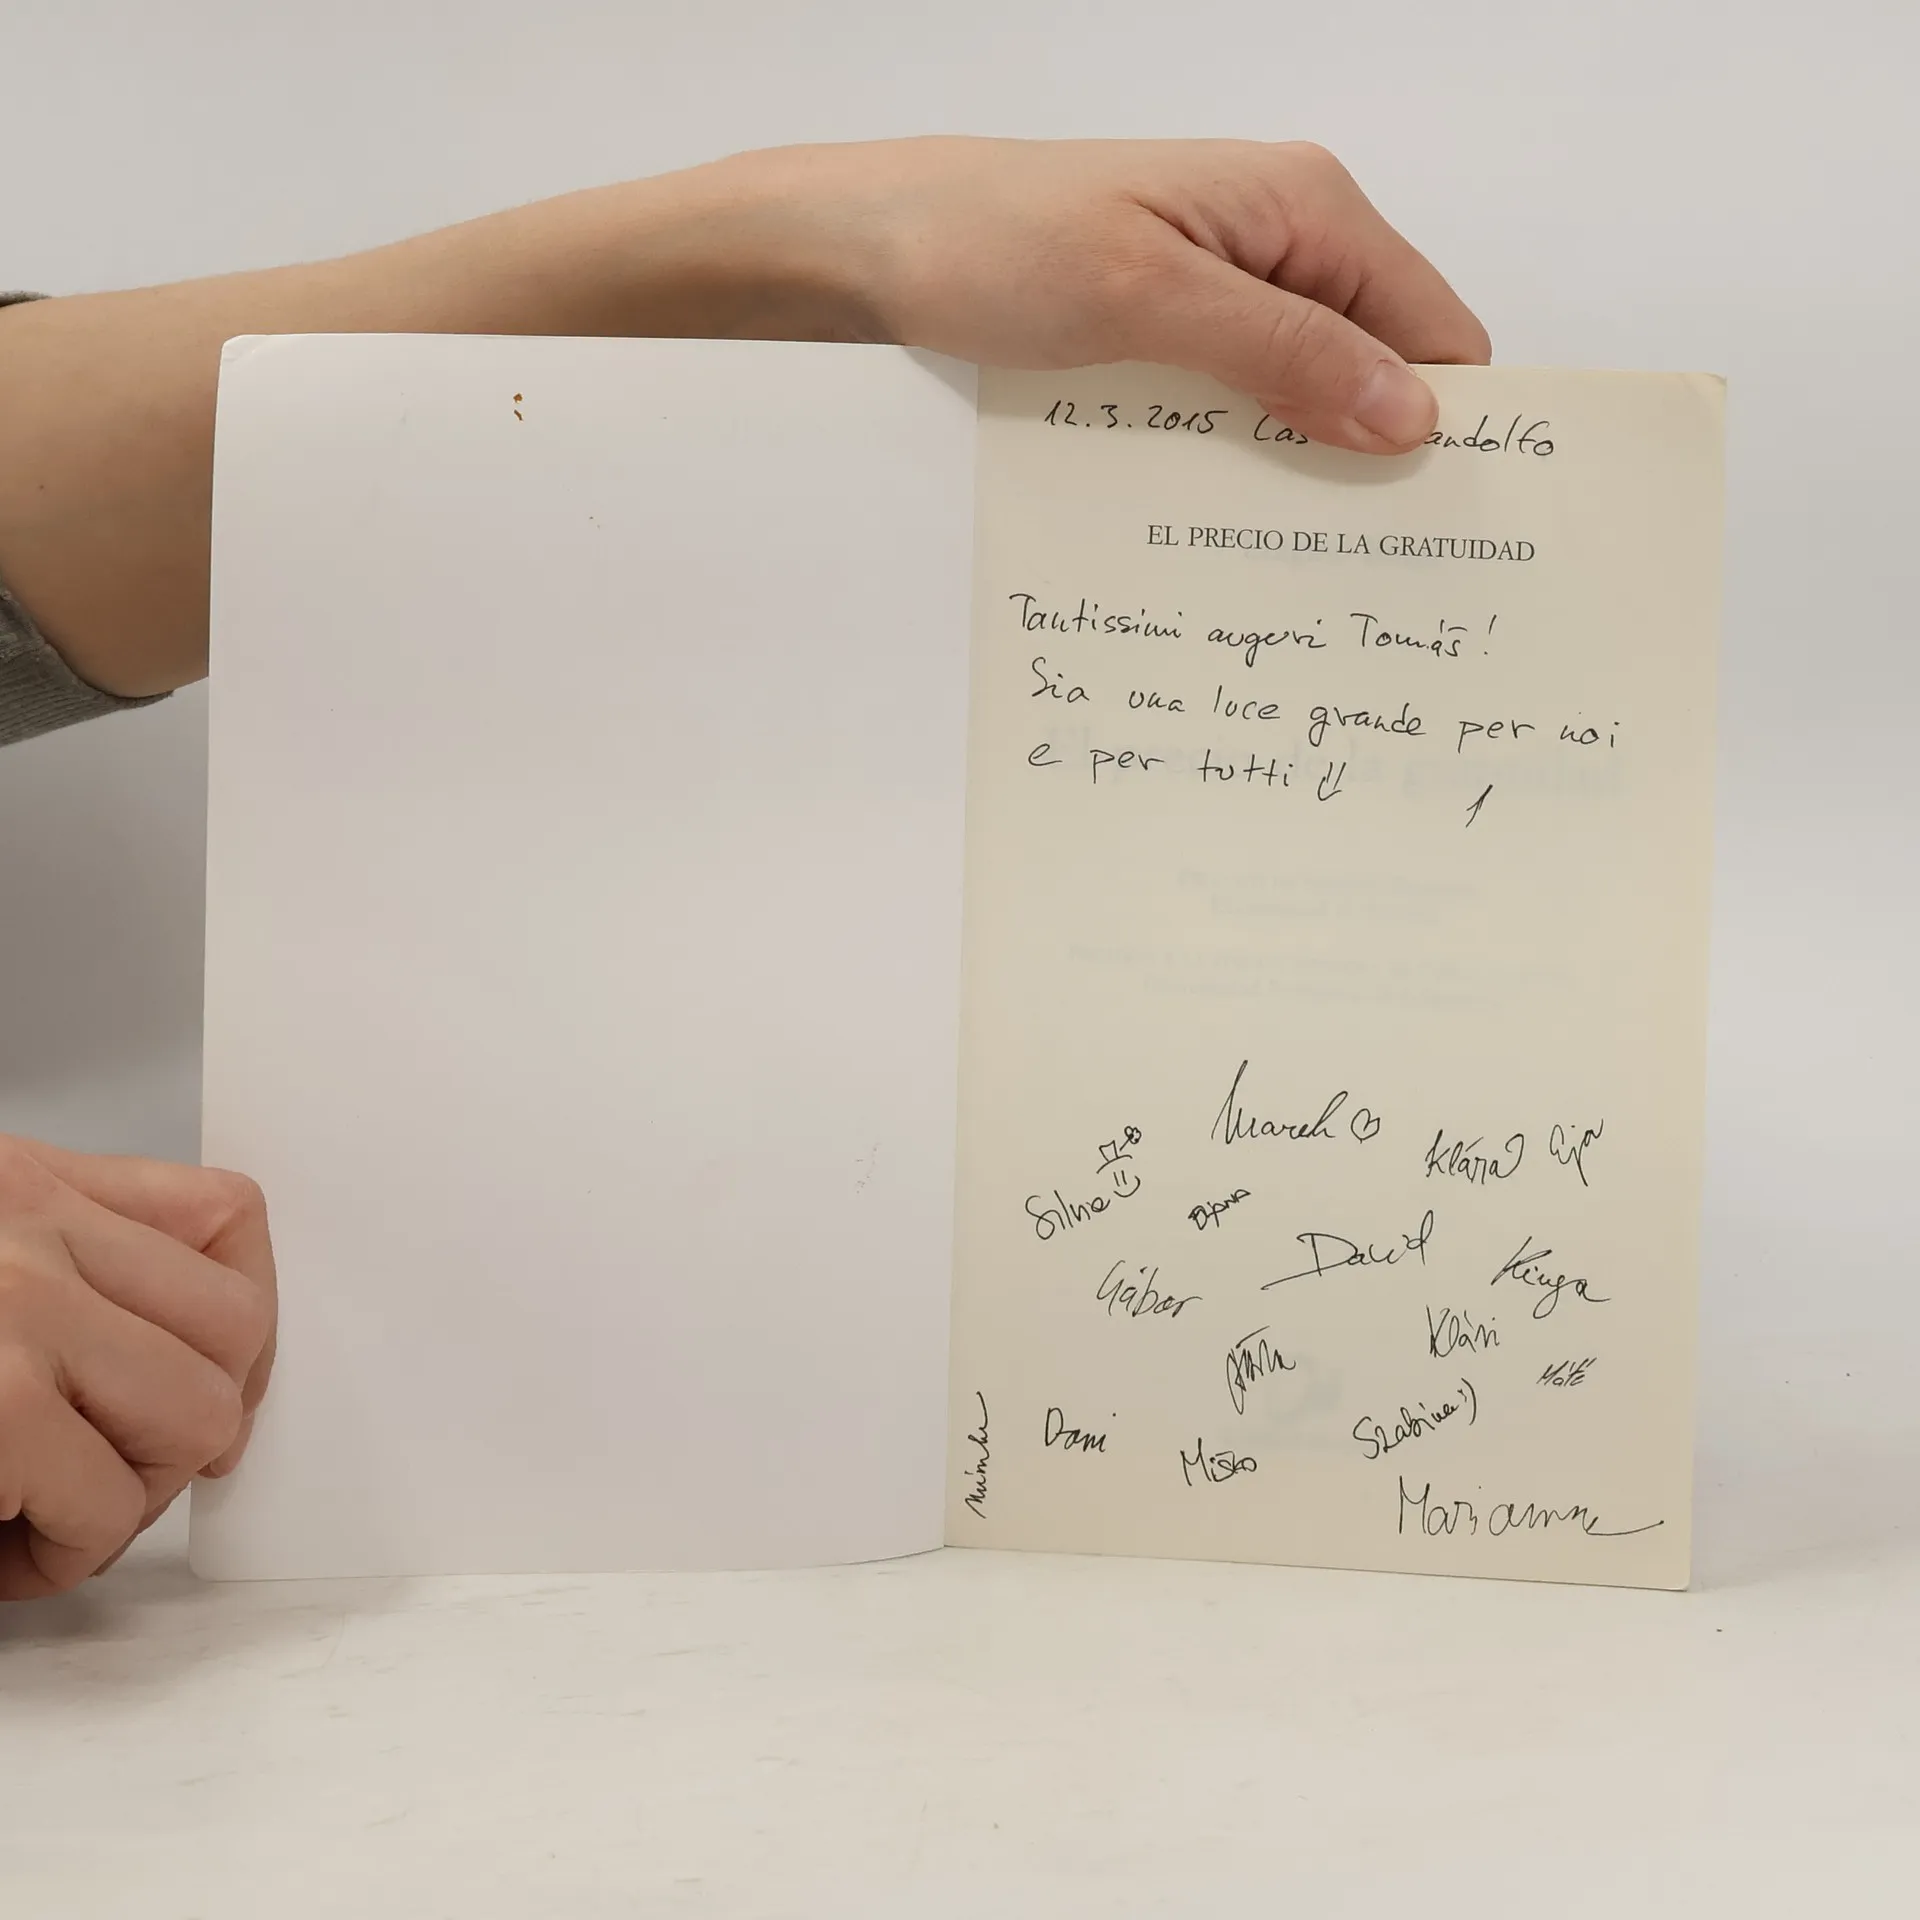 12.3.2015 Cas andolfo
EL PRECIO DE LA GRATUIDAD
Tantissimi auguri Tomáš!
Sia una luce grande per noi
e per tutti
Marek
Klára
Silvia
David
Kinga
Gábor
Klári
Máté
Szabina :)
Dani
Miško
Marianne